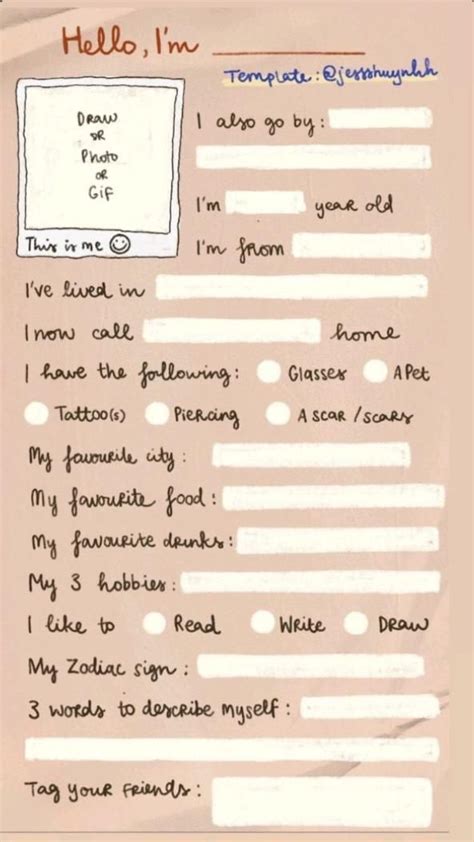 Hello, I'm
Template: @jessshuynhh
Draw
or
Photo
or
Gif
This is me
I also go by:
I'm year old
I'm from
I've lived in
I now call home
I have the following: Glasses A Pet
Tattoo(s) Piercing A scar/scars
My favourite city:
My favourite food:
My favourite drinks:
My 3 hobbies:
I like to Read Write Draw
My Zodiac sign:
3 words to describe myself:
Tag your friends: